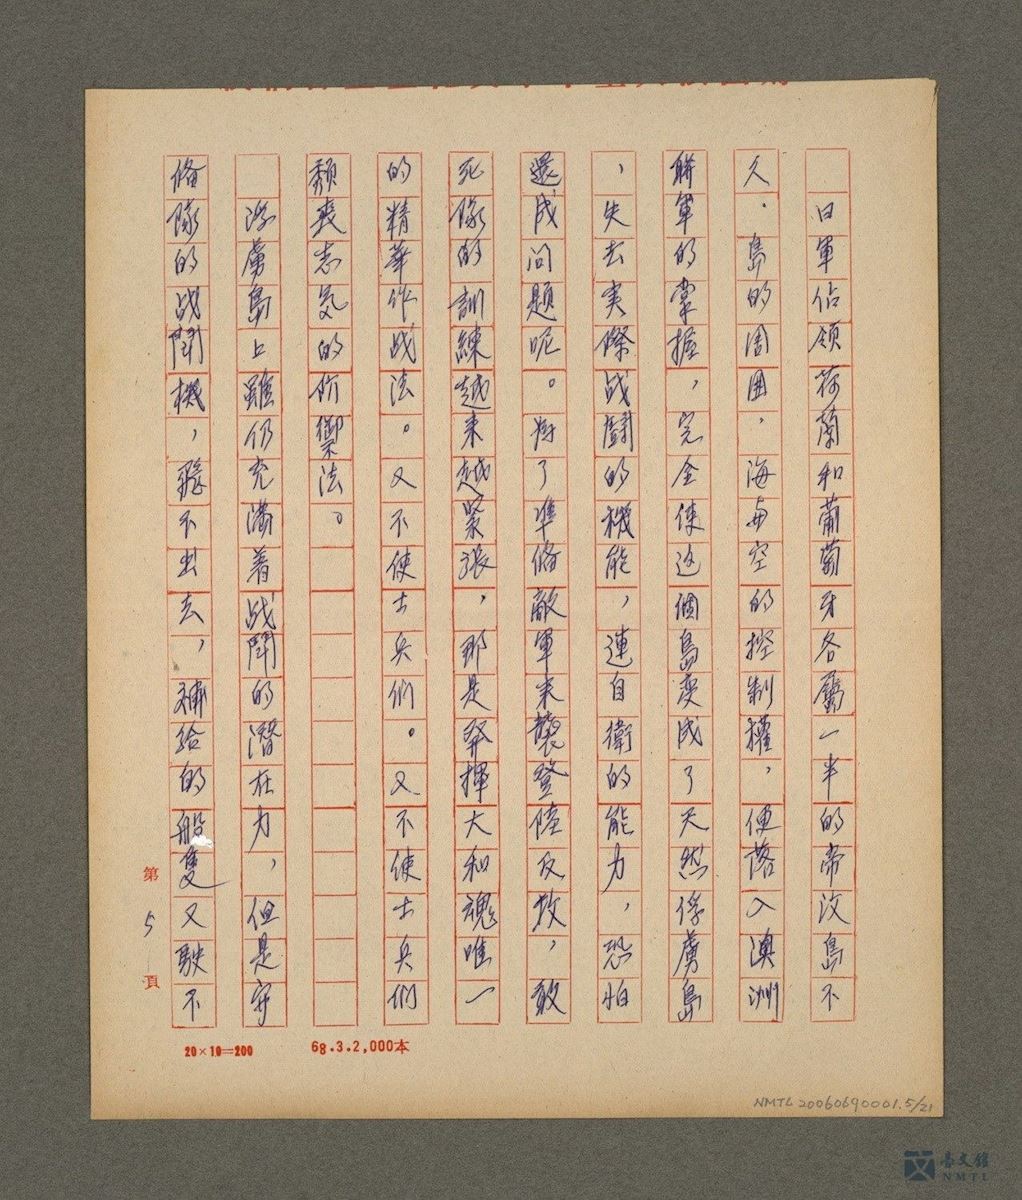 日軍佔領荷蘭和葡萄牙各屬一半的帝汶島不
久。島的周囲,海与空的控制權,便落入澳洲
聯軍的掌握,完全使这個島変成了天然俘虜島
,失去実際战闘的機能,連自衛的能力,恐怕
還成问題呢。為了準俻敵軍来襲登陸反攻,敢
死隊的訓練越来越緊張,那是発揮大和魂唯一
的精華作战法。又不使士兵们。又不使士兵们
頹喪志気的防禦法。
浮虜島上雖仍充满着战鬥的潛在力,但是守
俻隊的战鬥機,飛不出去,補給的般隻又駛不
第5頁
20×10=200
68.3.2,000本
NMTL 20060690001.5/21
台文館
NMTL